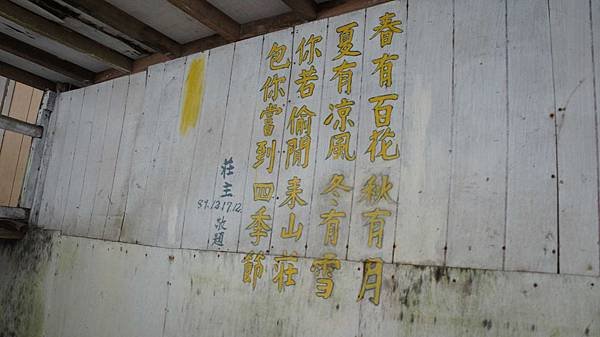 春有百花秋有月
夏有凉風冬有雪
你若偷閒來山莊
包你嘗到四季節
莊主
敬題